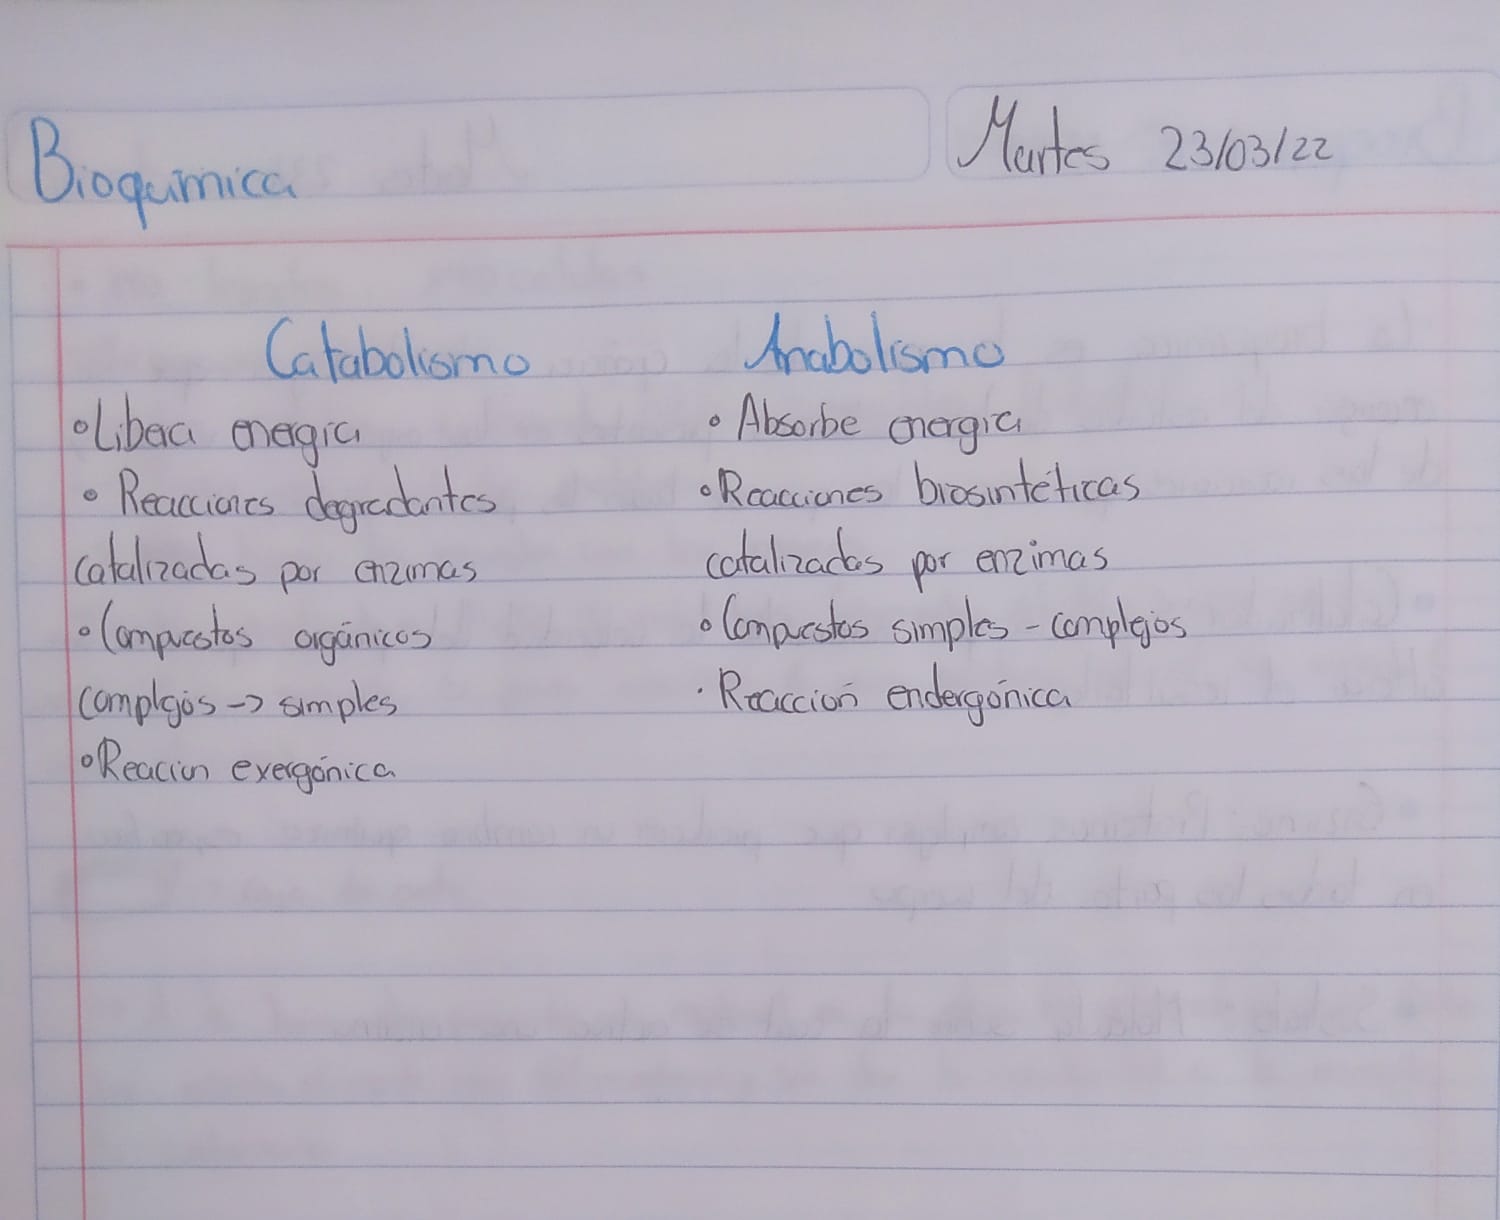 Bioquimica
Martes 23/03/22
Catabolismo
Anabolismo
•Libera energia
• Reacciones degradantes
catalizadas por enzimas
• Compuestos orgánicos
complejos -> simples
•Reacion exergónica
• Absorbe energia
• Reacciones biosintéticas
catalizadas por enzimas
• Compuestos simples - complejos
· Reacción endergónica